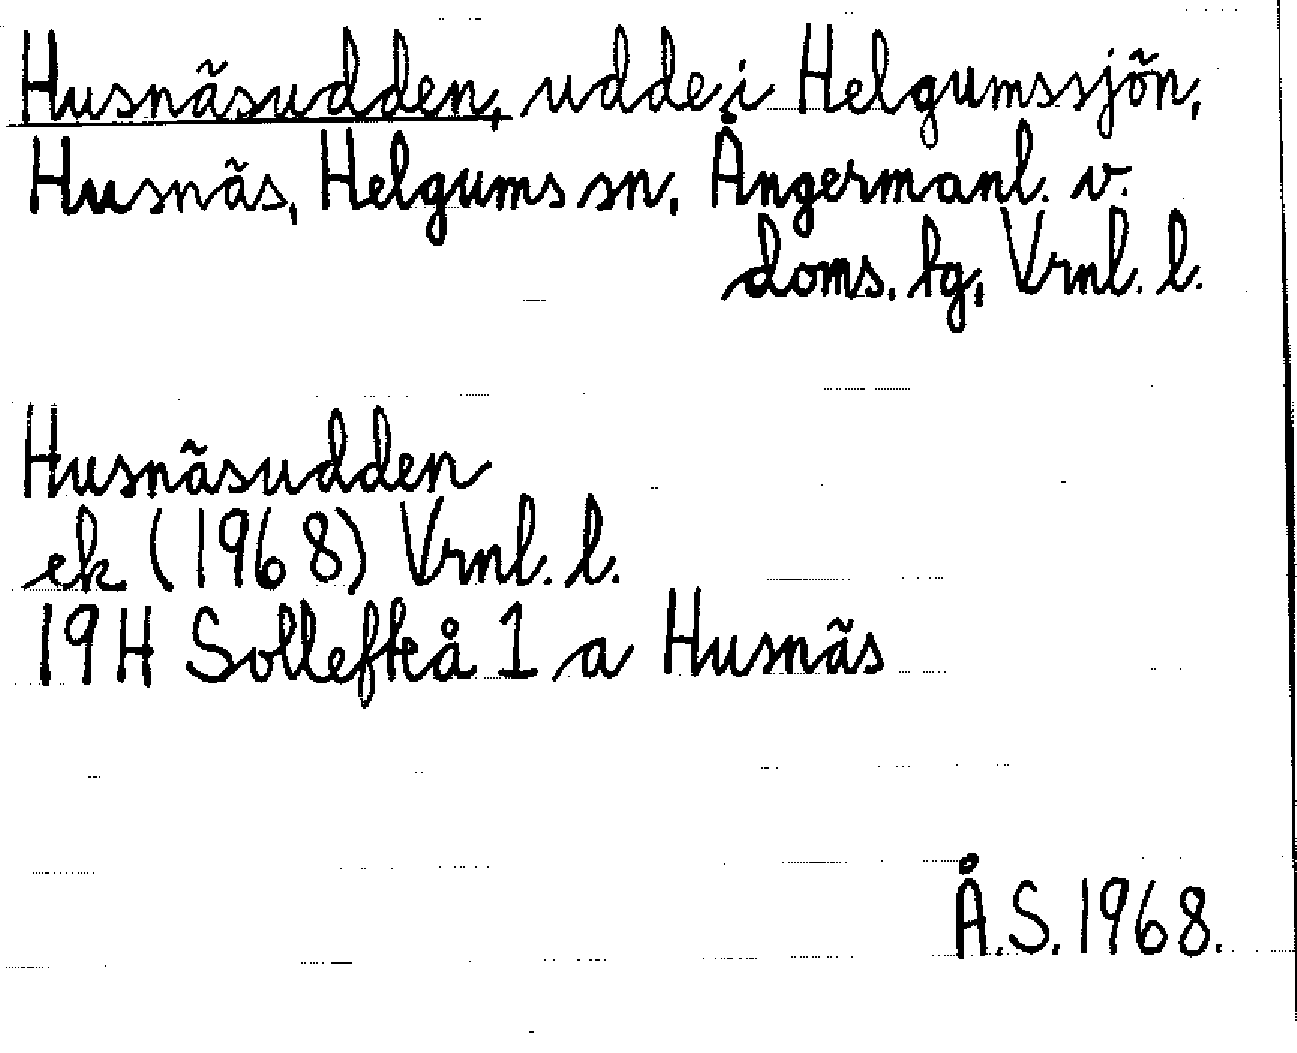 Husnäsudden, udde i Helgumssjön,
Husnäs, Helgums sn, Ångermanl. v.
doms. lg, Vrnl. l.
Husnäsudden
ek (1968) Vrnl. l.
19H Sollefteå 1 a Husnäs
Å.S. 1968.